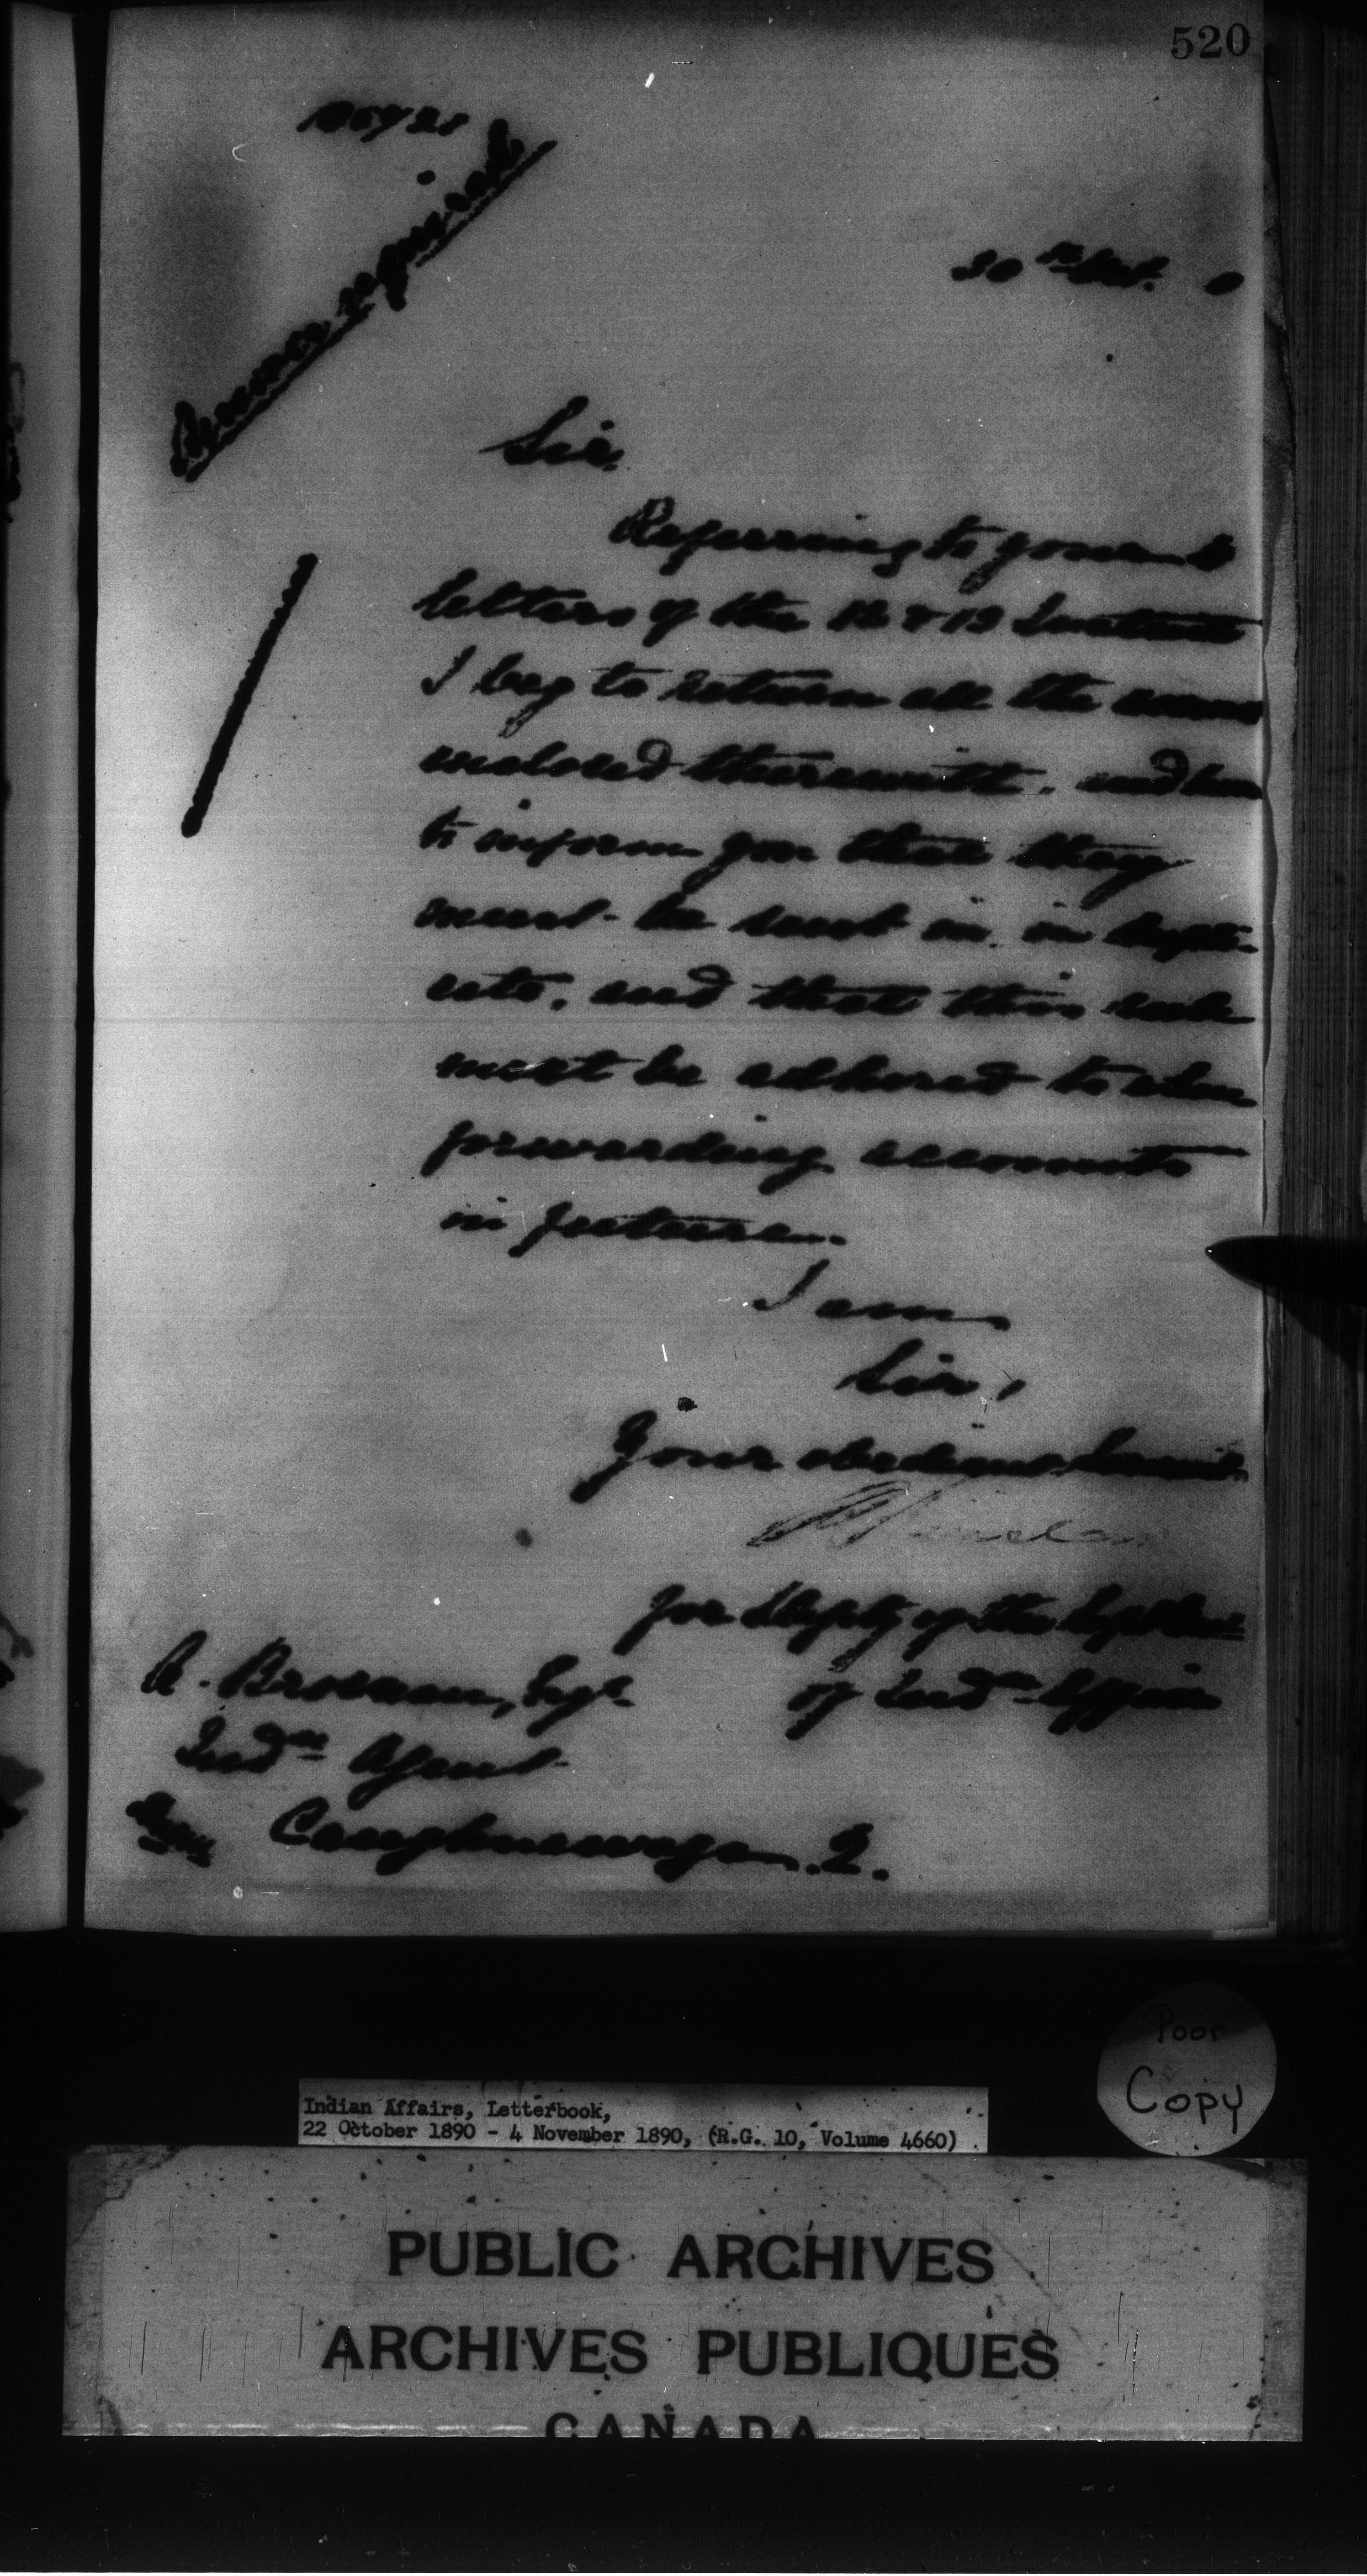 520
30th Oct. 0
Sir,
Referring to your
letters of the 12 & 13 Instant
I beg to return all the
enclosed therewith, and
to inform you that they
must be sent in, in dupli-
cate, and that this rule
must be adhered to when
forwarding accounts
in future.
I am,
Sir,
Your obedient Servant
for Depty of the Supt Genl
of Indn Affairs
A. Brosseau, Esqr
Indn Agent
Caughnawaga. Q.
Poor
Copy
Indian Affairs, Letterbook,
22 October 1890 - 4 November 1890, (R.G. 10, Volume 4660)
PUBLIC ARCHIVES
ARCHIVES PUBLIQUES
CANADA